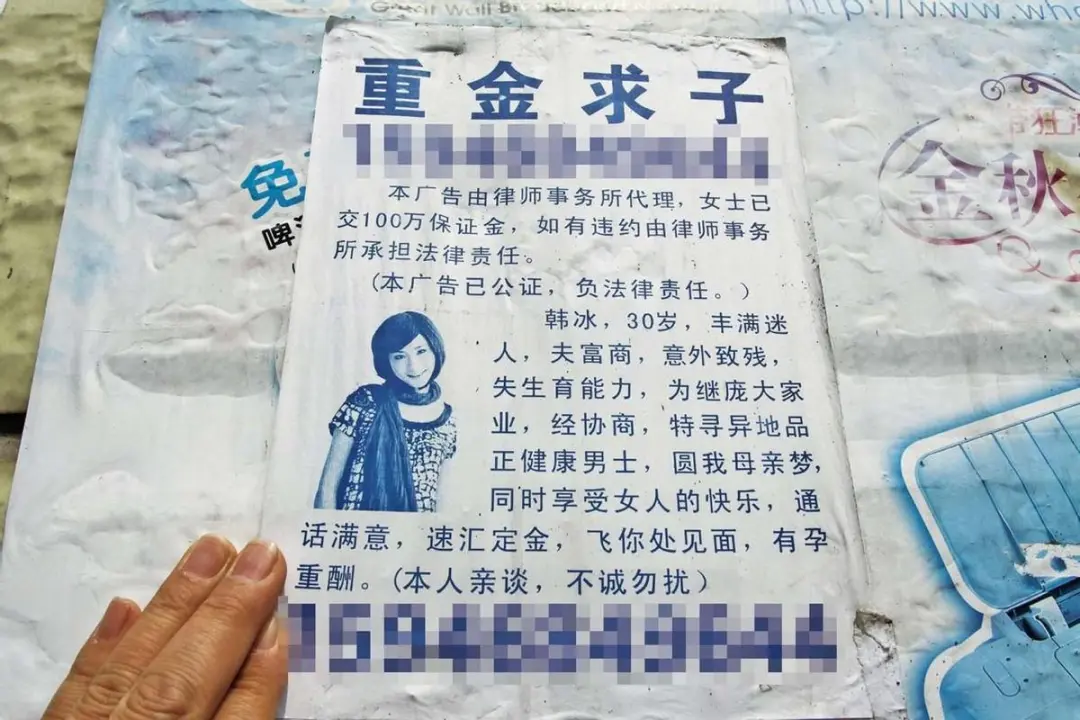 Great Wall Bro
http://www.wh
重金求子
本广告由律师事务所代理，女士已
交100万保证金，如有违约由律师事务
所承担法律责任。
(本广告已公证，负法律责任。)
韩冰，30岁，丰满迷
人，夫富商，意外致残，
失生育能力，为继庞大家
业，经协商，特寻异地品
正健康男士，圆我母亲梦，
同时享受女人的快乐，通
话满意，速汇定金，飞你处见面，有孕
重酬。(本人亲谈，不诚勿扰)
免
啤
金秋